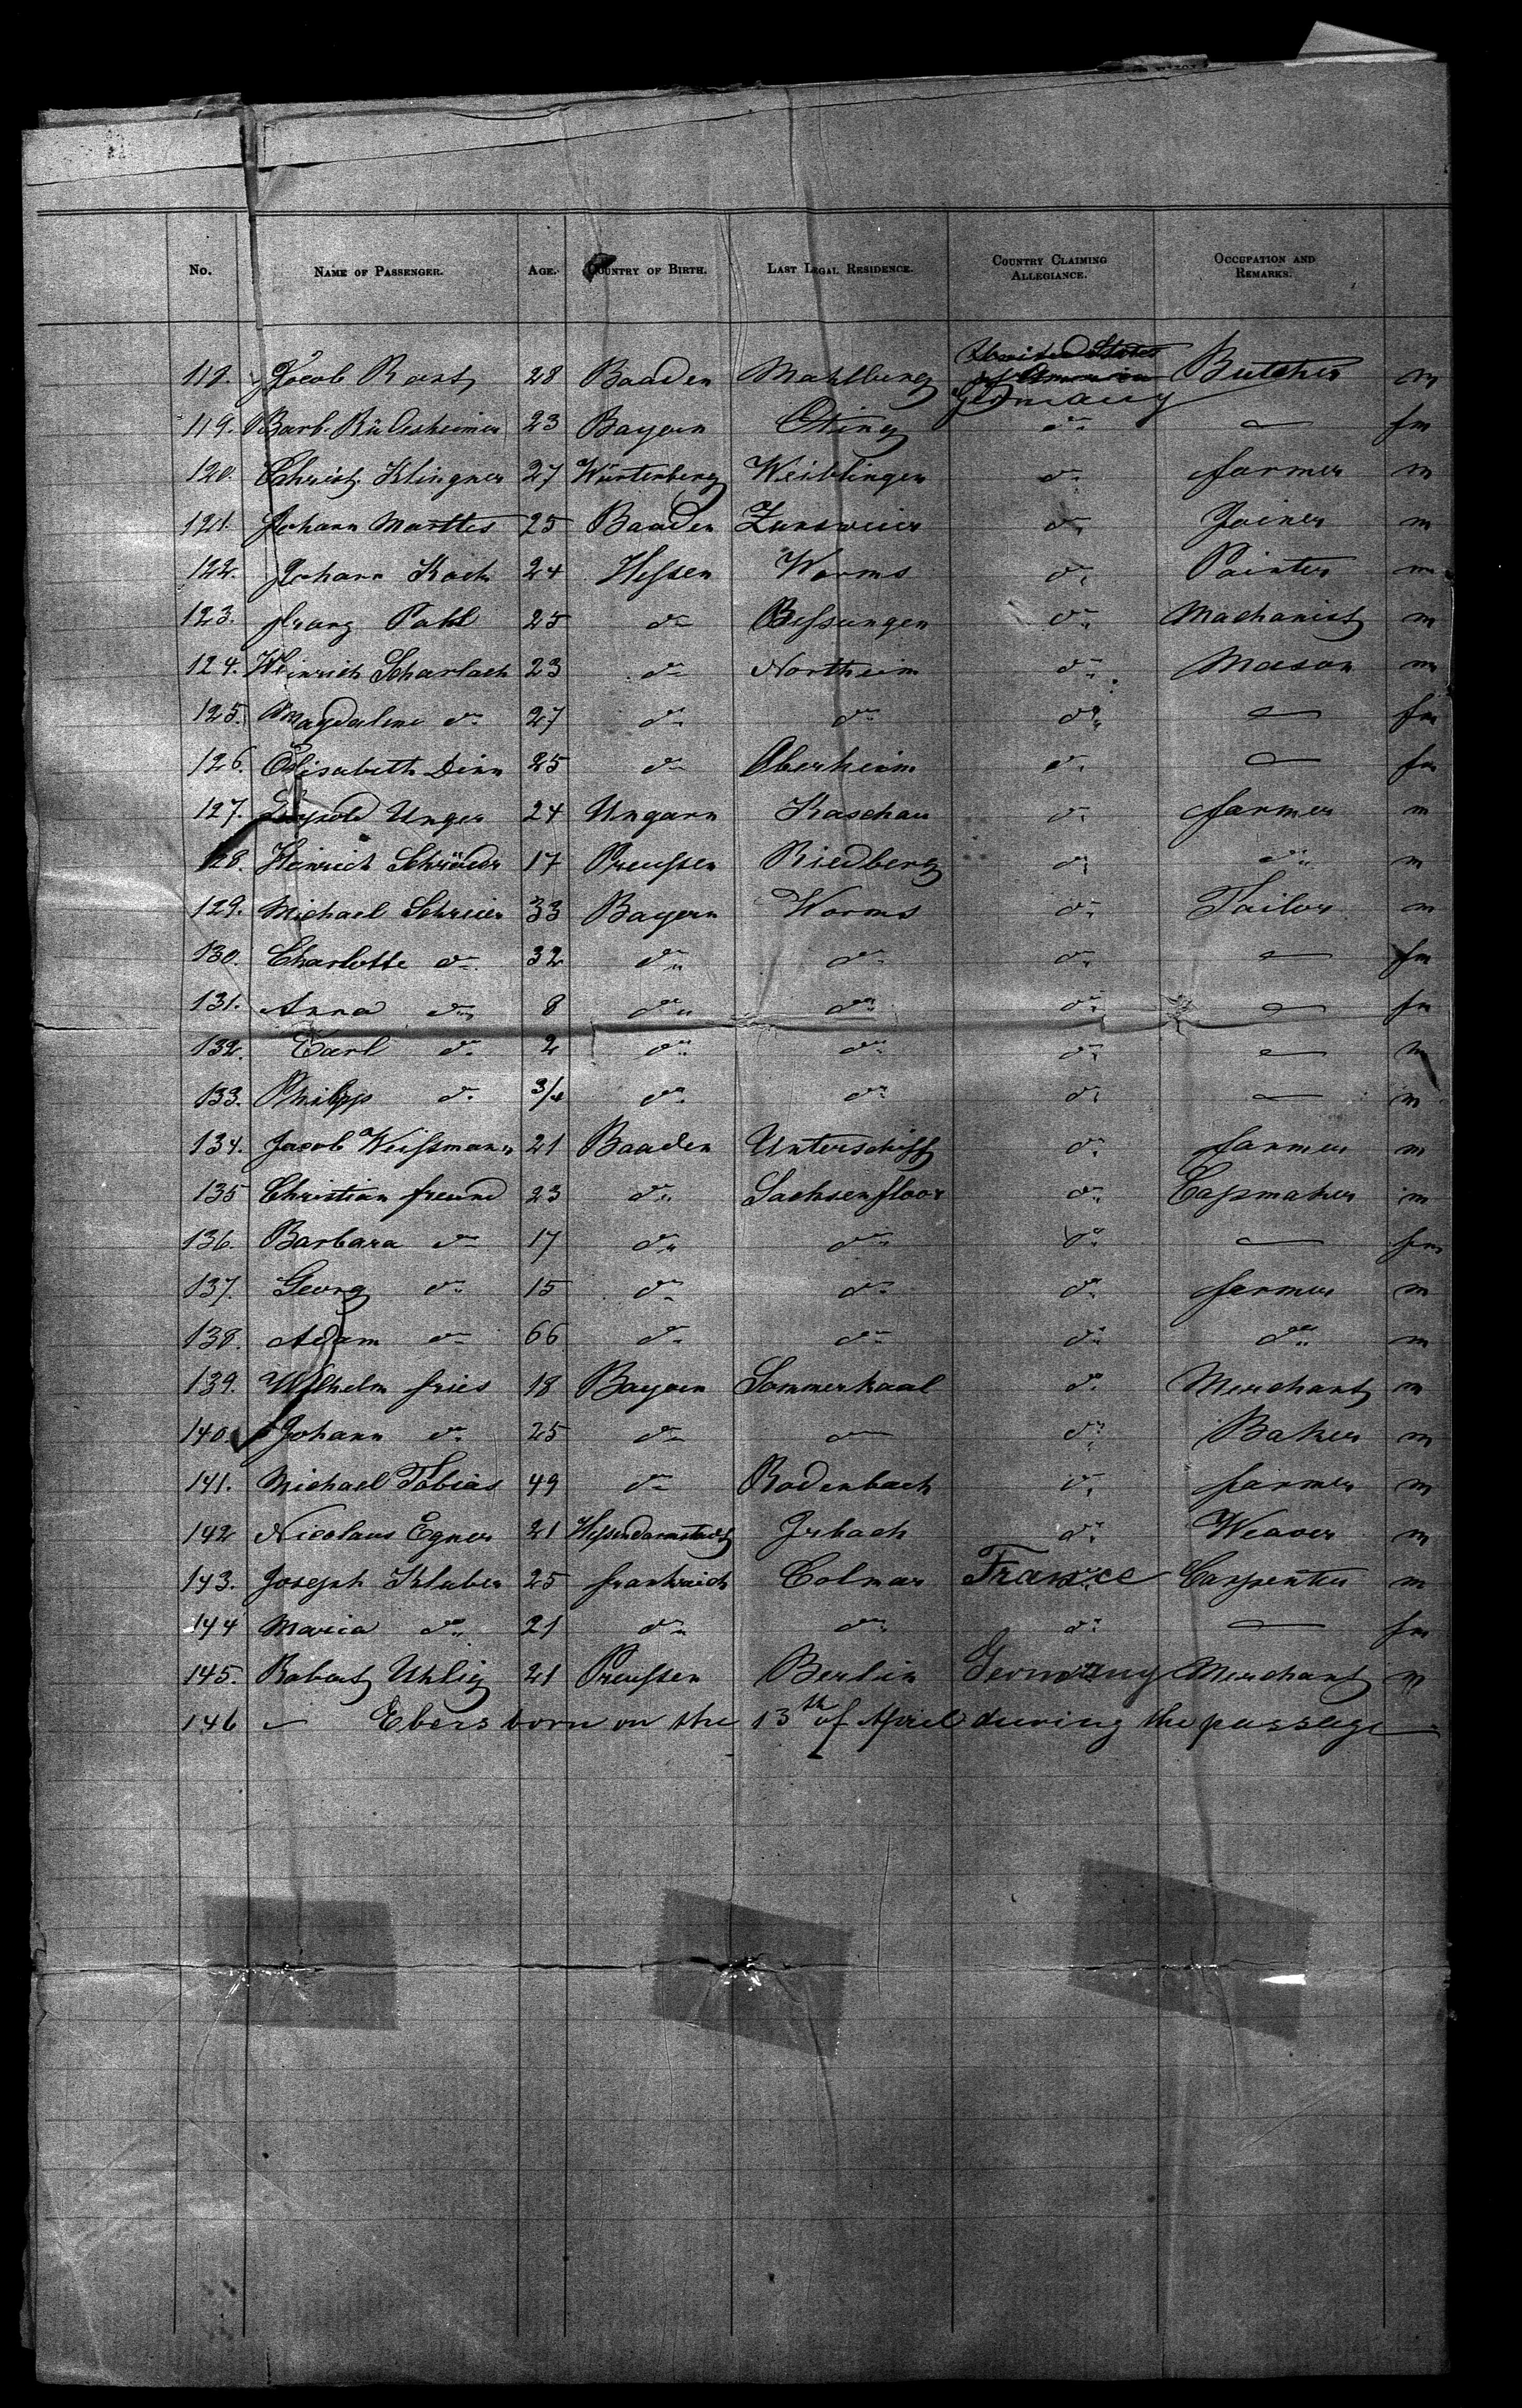 No. NAME OF PASSENGER. AGE. COUNTRY OF BIRTH. LAST LEGAL RESIDENCE. COUNTRY CLAIMING ALLEGIANCE. OCCUPATION AND REMARKS.
United States
118. Jacob Rost 28 Baaden Mahlburg of America Butcher m
Germany
119. Barb. Rüdesheimer 23 Bayern Oting do — fm
120. Christ. Klingner 27 Würtenberg Weiblingen do farmer m
121. Johann Marttes 25 Baaden Zunsweier do Joiner m
122. Johann Koch 24 Hessen Worms do Painter m
123. Franz Pahl 25 do Bessungen do Machanist m
124. Heinrich Scharlach 23 do Northeim do Mason m
125. Magdalene do 27 do do do — fm
126. Elisabeth Dinn 25 do Oberheim do — fm
127. Leopold Unger 24 Ungarn Kaschau do farmer m
128. Heinrich Schröder 17 Preussen Riedberg do do m
129. Michael Schreier 33 Bayern Worms do Tailor m
130. Charlotte do 32 do do do — fm
131. Anna do 8 do do do — fm
132. Carl do 2 do do do — m
133. Philipp do 3/4 do do do — m
134. Jacob Weissmann 21 Baaden Unterschüpf do farmer m
135 Christian Freund 23 do Sachsenfloor do Capmaker m
136. Barbara do 17 do do do — fm
137. Georg do 15 do do do farmer m
138. Adam do 66 do do do do m
139. Wilhelm Fries 18 Bayern Sommerkaal do Merchant m
140. Johann do 25 do do do Baker m
141. Michael Tobias 49 do Rodenbach do farmer m
142 Nicolaus Egner 21 Hessendarmstadt Irbach do Weaver m
143. Joseph Kluber 25 Frankreich Colmar France Carpenter m
144 Maria do 21 do do do — fm
145. Robert Uhlig 21 Preussen Berlin Germany Merchant m
146 — Ebers born on the 13th of April during the passage